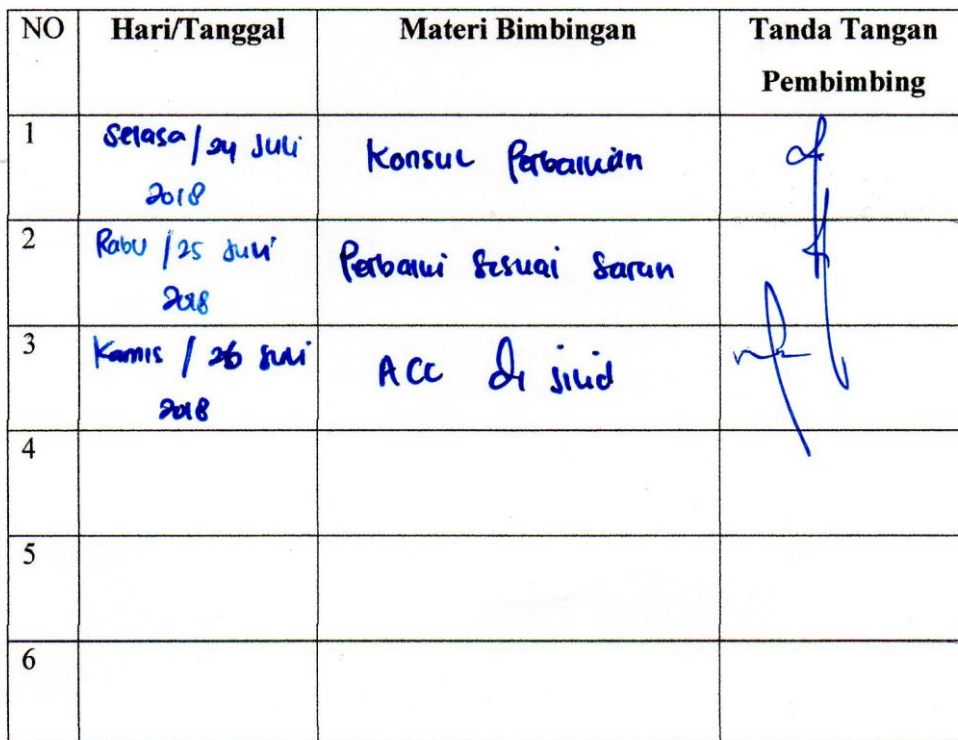 NO Hari/Tanggal Materi Bimbingan Tanda Tangan
Pembimbing
1 Selasa / 24 Juli Konsul Perbaikan
2018
2 Rabu / 25 Juli Perbaiki Sesuai Saran
2018
3 Kamis / 26 Juli ACC di jilid
2018
4
5
6